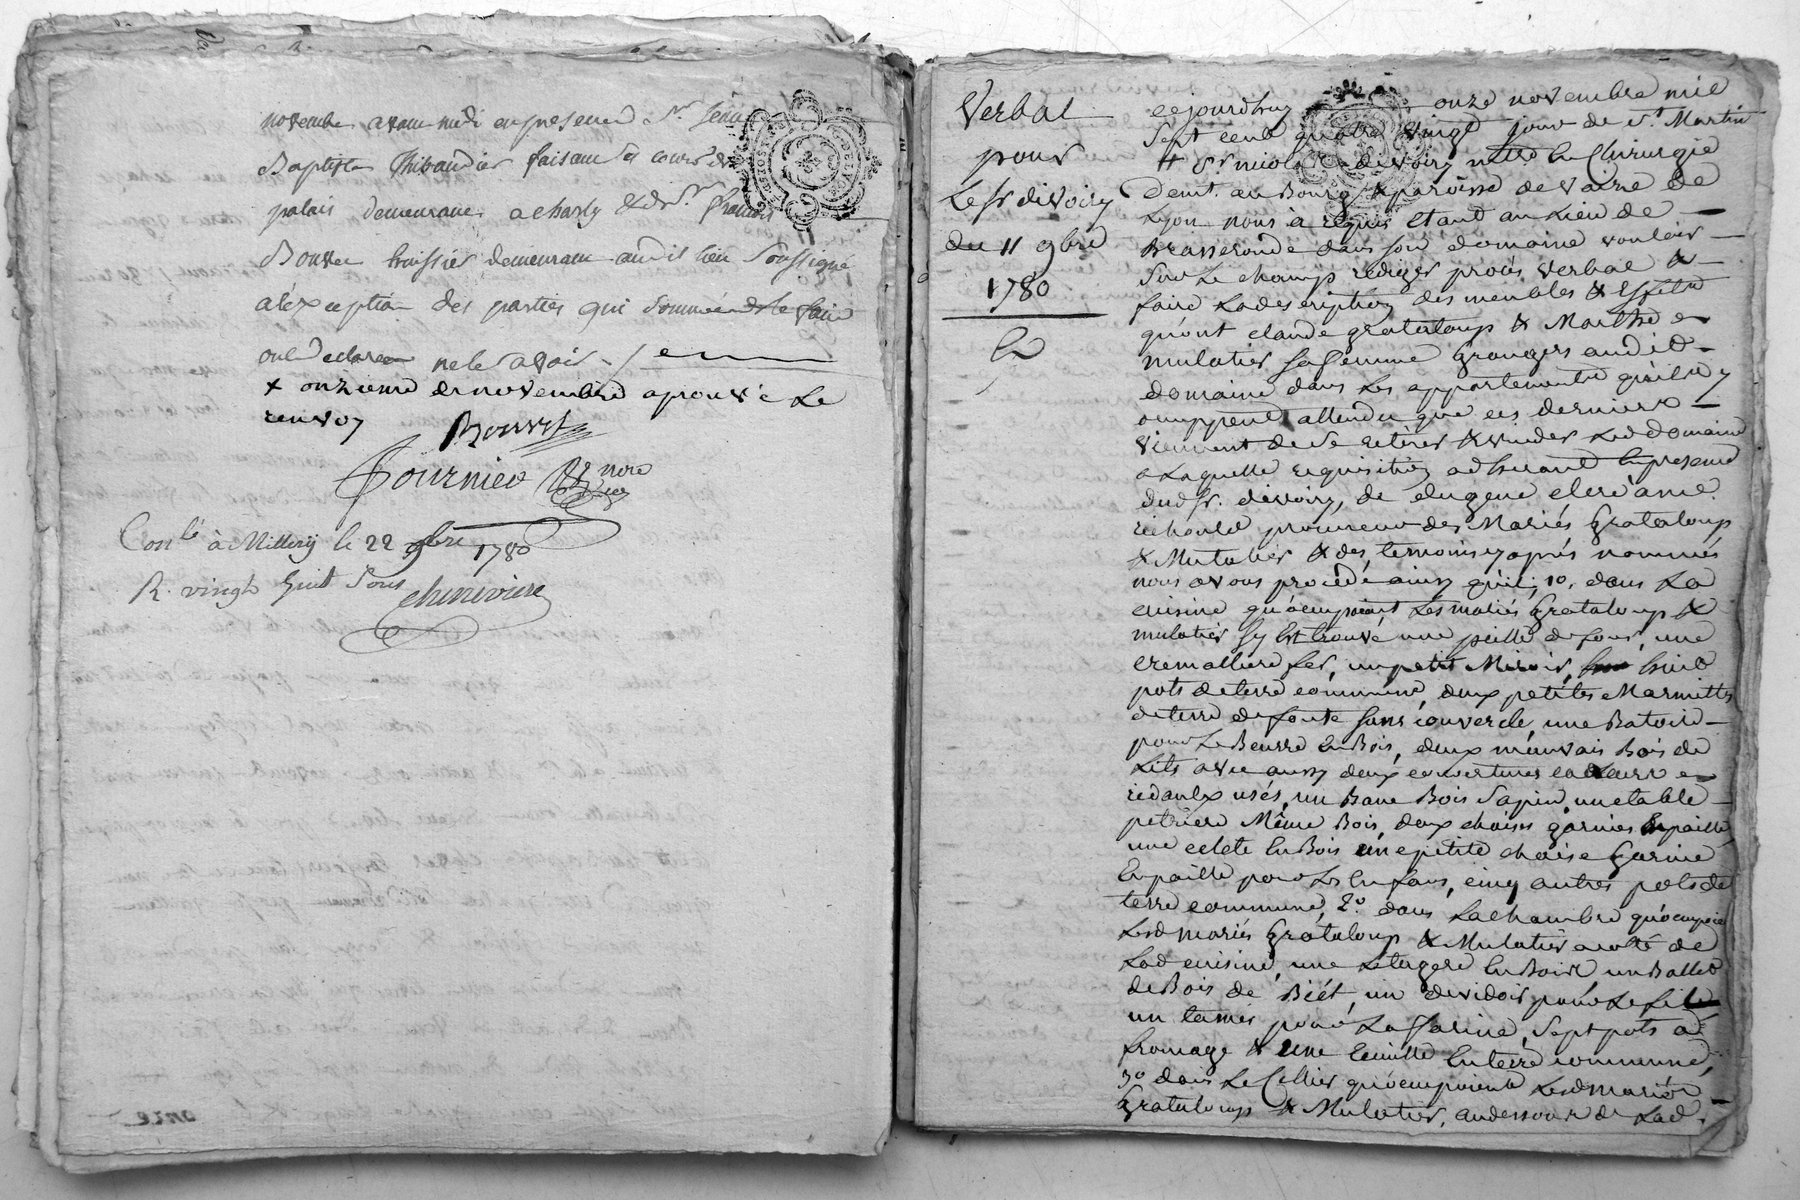 novembre avant midi en presence Sr. Jean
Baptiste Thibaudier faisant et cour de
palais demeurant a charly & de Sr. francois
Bouvet huissier demeurant audit lieu Soussigné
a l'exception des parties qui sommées de le faire
ont declaré ne le savoir
x onzieme de novembre aprouvé Le
renvoy
Bouvet
Fournier nore
Conlé à Millery le 22 9bre 1780
R. vingt huit sous
cheneviere
onze
Verbal
pour
Le Sr divoiry
du 11 9bre
1780
cejourdhuy onze novembre mil
Sept cent quatre vingt jour de St. Martin
Sr nicolas divoiry mtre En Chirurgie
demt au Bourg & paroisse de vaize de
Lyon nous à requis etant au Lieu de
Brasseronde dans son domaine vouloir
Sur Le champ rediger procès verbal &
faire La description des meubles & Effets
qu'ont claude grataloup & Marthe
mulatier sa femme Grangers audit
domaine dans Les appartements qu'ils y
occuppent attendu que ces derniers
viennent de se retirer & vuider Led domaine
a Laquelle requisition adherant En presence
dud Sr. divoiry, de eugene cleré ame
richoud procureur des Mariés Grataloup
& Mulatier & des temoins cy après nommés
nous avons procedé ainsy qu'il; 1o. dans La
cuisine qu'occupoient Les mariés Grataloup &
mulatier sy Est trouvé une pèelle de four, une
cremalliere fer, un petit Miroir, huit
pots de terre commune, deux petites Marmittes
de terre de fonte sans couvercle, une Batoire
pour Le Beurre En Bois, deux mauvais Bois de
Lits avec aussy deux couvertures cadeurs
ridaulx usés, un Banc Bois Sapin, une table
petriere Même Bois, deux chaises garnies En paille
une celete En Bois une petite chaise Garnie
En paille pour Les Enfans, cinq autres pots de
terre commune, 2o. dans La chambre qu'occupoient
Lesd mariés Grataloup & Mulatier a coté de
Lad cuisine, une Etagere En Bois un Ballet
de Bois de Biét, un devidoir pour Le fil
un tamis pour La farine, Sept pots a
fromage & une En terre commune,
3o dans Le Cellier qu'occupoient Lesd mariés
Grataloup & Mulatier, au dessous de Lad